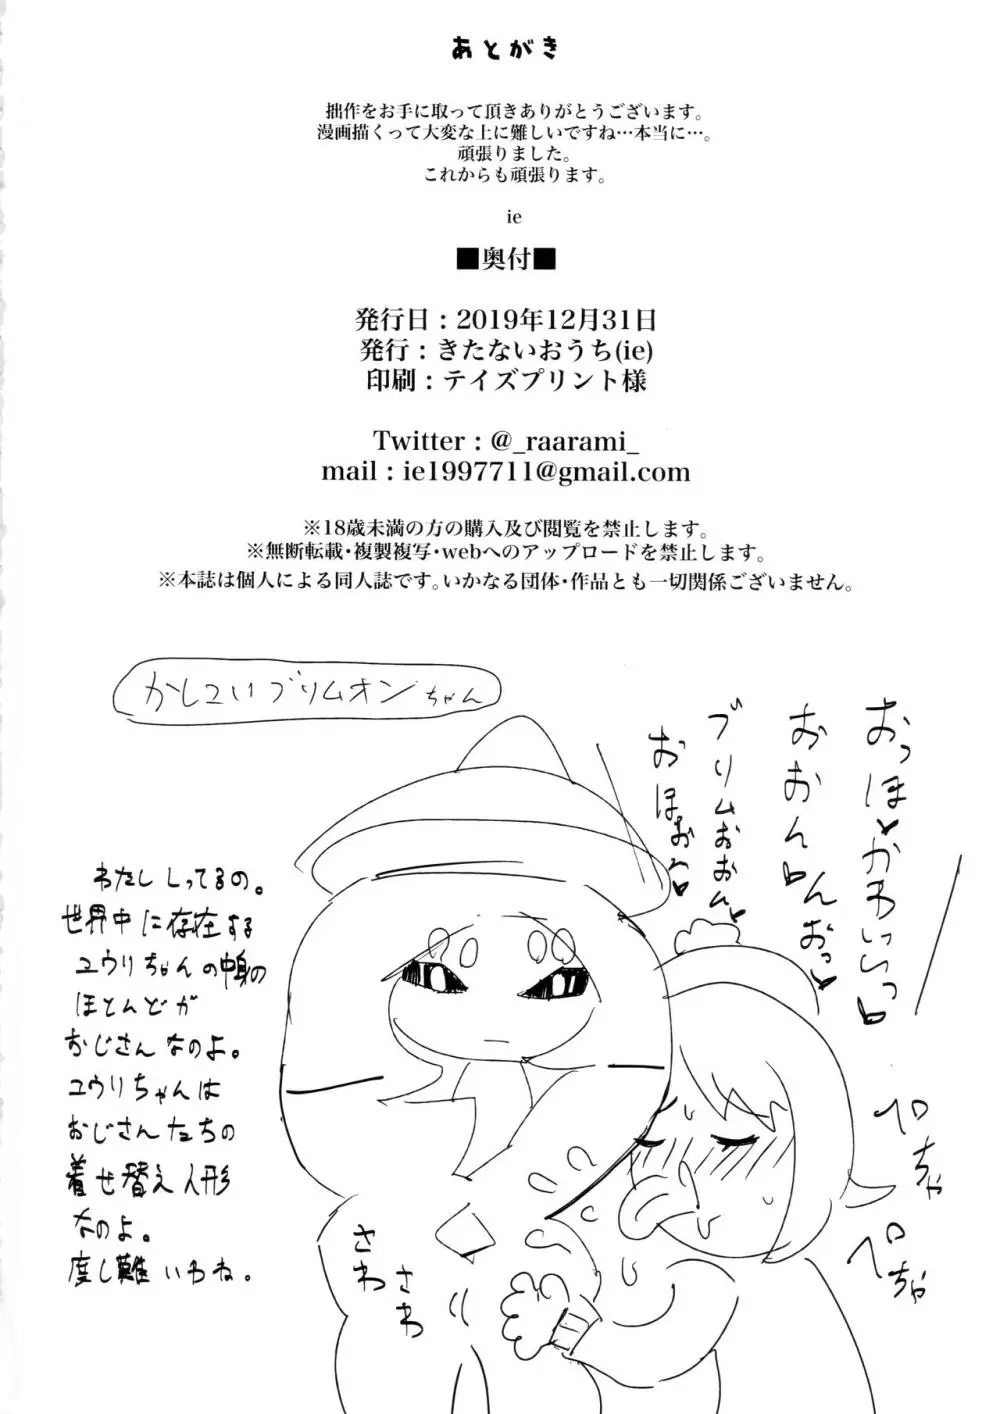 あとがき
拙作をお手に取って頂きありがとうございます。
漫画描くって大変な上に難しいですね…本当に…。
頑張りました。
これからも頑張ります。
ie
■奥付■
発行日：2019年12月31日
発行：きたないおうち(ie)
印刷：テイズプリント様
Twitter：@_raarami_
mail：ie1997711@gmail.com
※18歳未満の方の購入及び閲覧を禁止します。
※無断転載・複製複写・webへのアップロードを禁止します。
※本誌は個人による同人誌です。いかなる団体・作品とも一切関係ございません。
かしこいブリムオンちゃん
おっほ♥かわいいっ♥
おおん♥んおっ♥
ブリムおおん♥
おほおっ♥
わたししってるの。
世界中に存在する
ユウリちゃんの中身の
ほとんどが
おじさんなのよ。
ユウリちゃんは
おじさんたちの
着せ替え人形
なのよ。
度し難いわね。
さわ
さわ
ペロちゃ
ペロちゃ